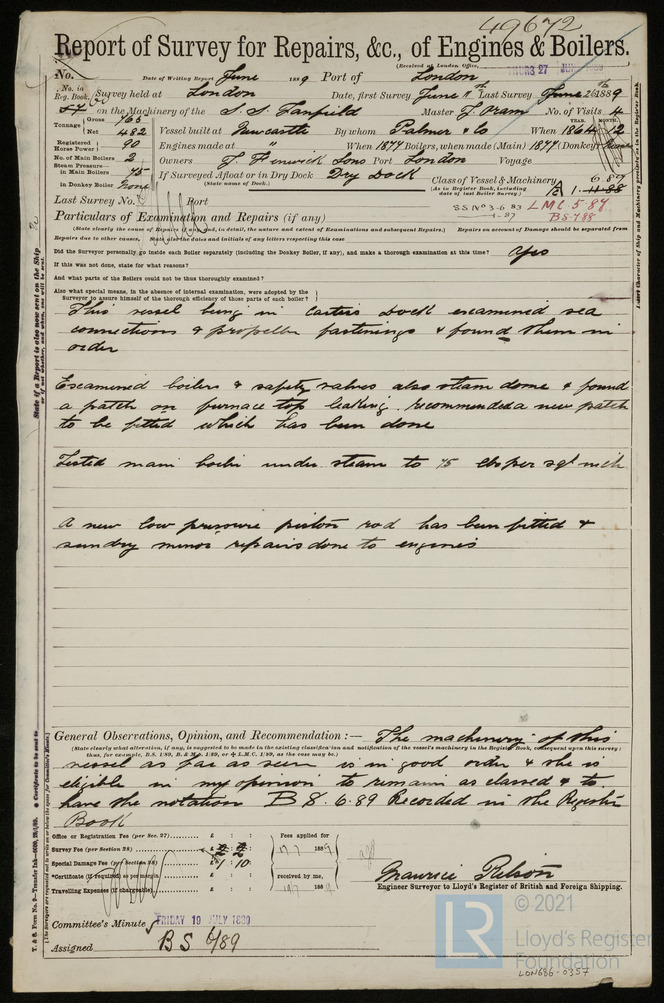 49672
Report of Survey for Repairs, &c., of Engines & Boilers.
(Received at London Office, THURS 27 JUNE 1889
No. Date of Writing Report June 1889 Port of London
No. in Reg. Book. Survey held at London Date, first Survey June 11th Last Survey June 26th 1889
57 on the Machinery of the S.S. Tanfield Master J. Oram No. of Visits 4
Tonnage Gross 765 Net 482 Vessel built at Newcastle By whom Palmer & Co When 1864 YEAR. MONTH. 12
Registered Horse Power 90 Engines made at " When 1877 Boilers, when made (Main) 1877 (Donkey) None
No. of Main Boilers 2 Owners J. Fenwick Sons Port London Voyage
Steam Pressure in Main Boilers 45 If Surveyed Afloat or in Dry Dock Dry Dock Class of Vessel & Machinery 6 87
in Donkey Boiler None (State name of Dock.) (As in Register Book, including date of last Boiler Survey.) A 1. 11-88
Last Survey No. Port SS No 3-6 83 LMC 5-87
1-87 BS-7 88
Particulars of Examination and Repairs (if any)
(State clearly the cause of Repairs, and, in detail, the nature and extent of Examinations and subsequent Repairs.) Repairs on account of Damage should be separated from
Repairs due to other causes, State also the dates and initials of any letters respecting this case
Did the Surveyor personally go inside each Boiler separately (including the Donkey Boiler, if any), and make a thorough examination at this time? Yes
If this was not done, state for what reasons?
And what parts of the Boilers could not be thus thoroughly examined?
Also what special means, in the absence of internal examination, were adopted by the
Surveyor to assure himself of the thorough efficiency of those parts of each boiler?
This vessel being in Carters Dock examined sea
connections & propeller fastenings & found them in
order
Examined boilers & safety valves also steam dome & found
a patch on furnace top leaking. recommended a new patch
to be fitted which has been done
Tested main boiler under steam to 45 lbs per sq inch
A new low pressure piston rod has been fitted &
sundry minor repairs done to engines
General Observations, Opinion, and Recommendation :— The machinery of this
(State clearly what alteration, if any, is suggested to be made in the existing classification and notification of the vessel's machinery in the Register Book, consequent upon this survey;
thus, for example, B.S. 1/89, B. & M.S. 1/89, or L.M.C. 1/89, as the case may be.)
vessel as far as seen is in good order & she is
eligible in my opinion to remain as classed & to
have the notation B S. 6.89 Recorded in the Register
Book
Office or Registration Fee (per Sec. 27) £ : : Fees applied for
Survey Fee (per Section 28) £ 2 : 2 : 1889
Special Damage Fee (per Section 28) £ 1 : 10
*Certificate (if required) as per margin £ : : received by me,
Travelling Expenses (if chargeable) £ : : 188
Maurice Rilson
Engineer Surveyor to Lloyd's Register of British and Foreign Shipping.
Committee's Minute FRIDAY 19 JULY 1889
Assigned BS 6/89
LR © 2021
Lloyd's Register
Foundation
LON686-0357
State if a Report is also now sent on the Ship
or if not, whether, and when, one will be sent.
Insert Character of Ship and Machinery precisely as in the Register Book.